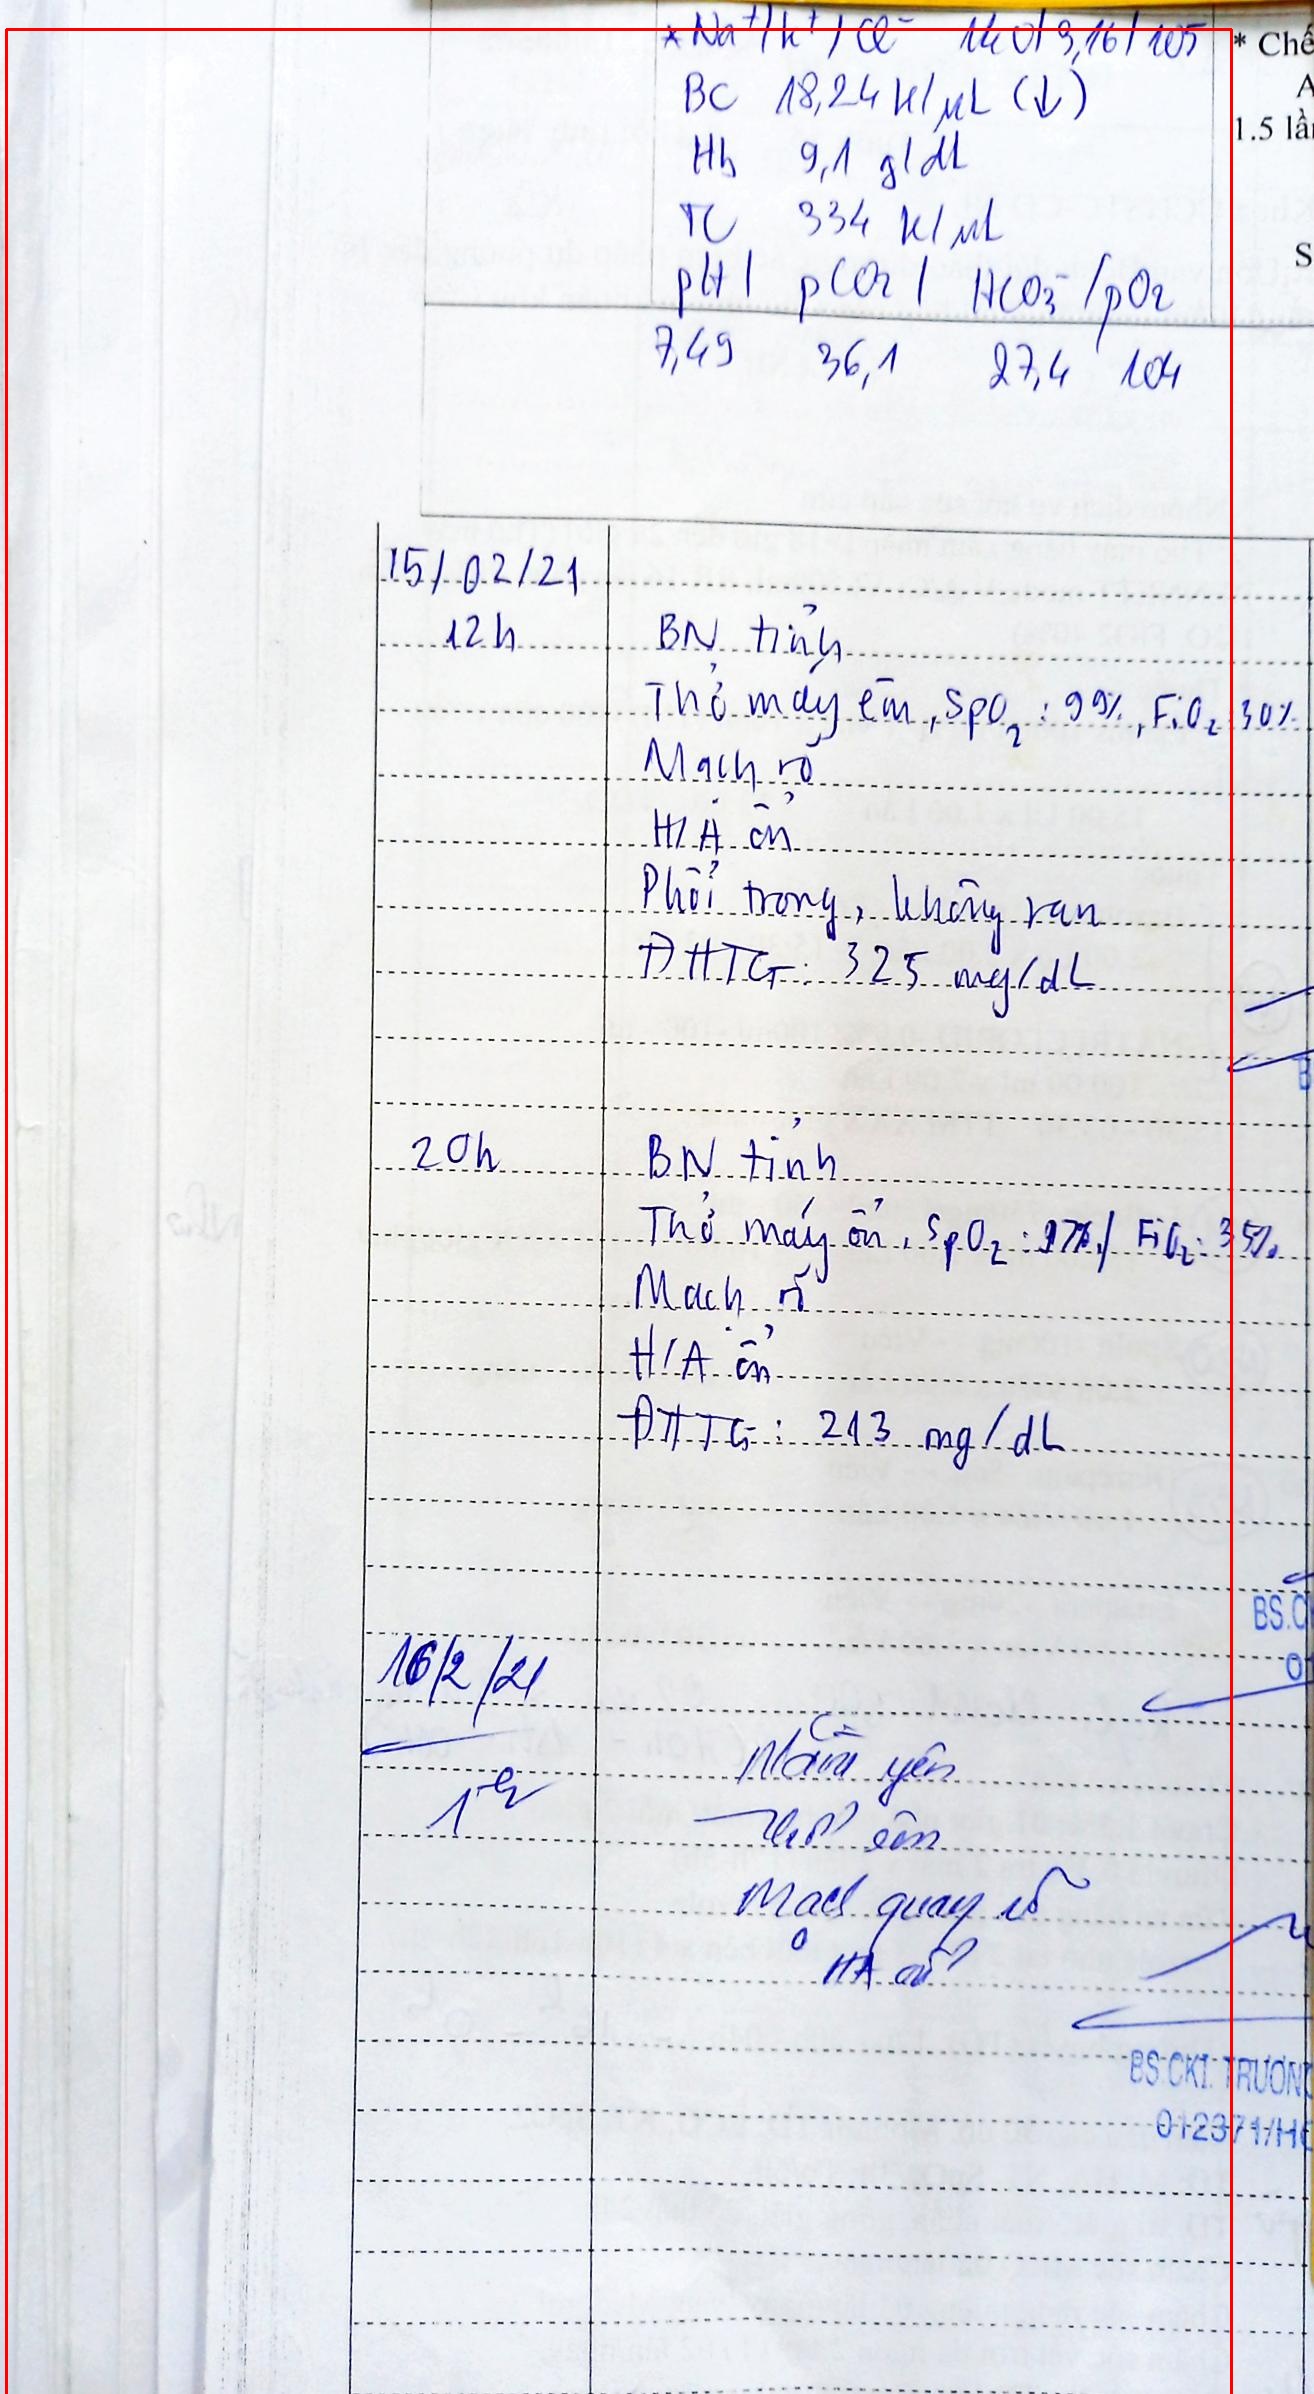 * Na⁺/K⁺/Cl⁻ 140/3,16/105
* Chế
A
BC 18,24 K/µL (↓)
1.5 lần
Hb 9,1 g/dL
TC 334 K/µL
S
pH / pCO2 / HCO3⁻ / pO2
7,49 36,1 27,4 104
15/02/21
12h BN tỉnh
Thở máy êm, SpO2: 99%, FiO2 30%
Mạch rõ
H/A ổn
Phổi trong, không ran
ĐHTG: 325 mg/dL
20h BN tỉnh
Thở máy ổn, SpO2: 97%/ FiO2: 35%
Mạch rõ
H/A ổn
ĐHTG: 213 mg/dL
BS.C
16/2/21
Nằm yên
1h
Thở êm
Mạch quay rõ
HA ổn
BS.CKI. TRƯƠNG
012371/HC